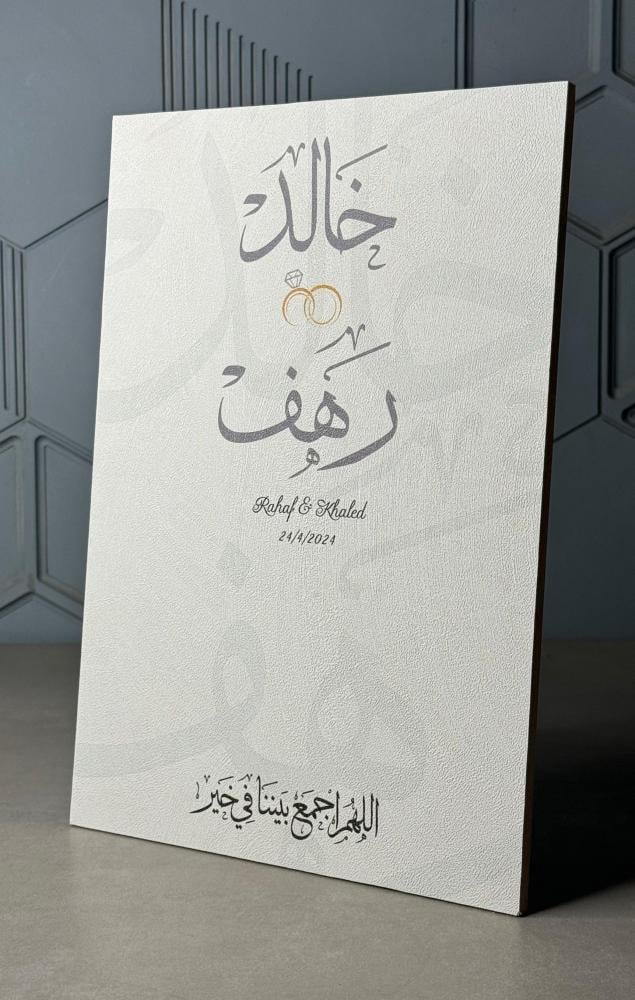 خالد
رهف
Rahaf & Khaled
24/4/2024
اللهم اجمع بيننا في خير